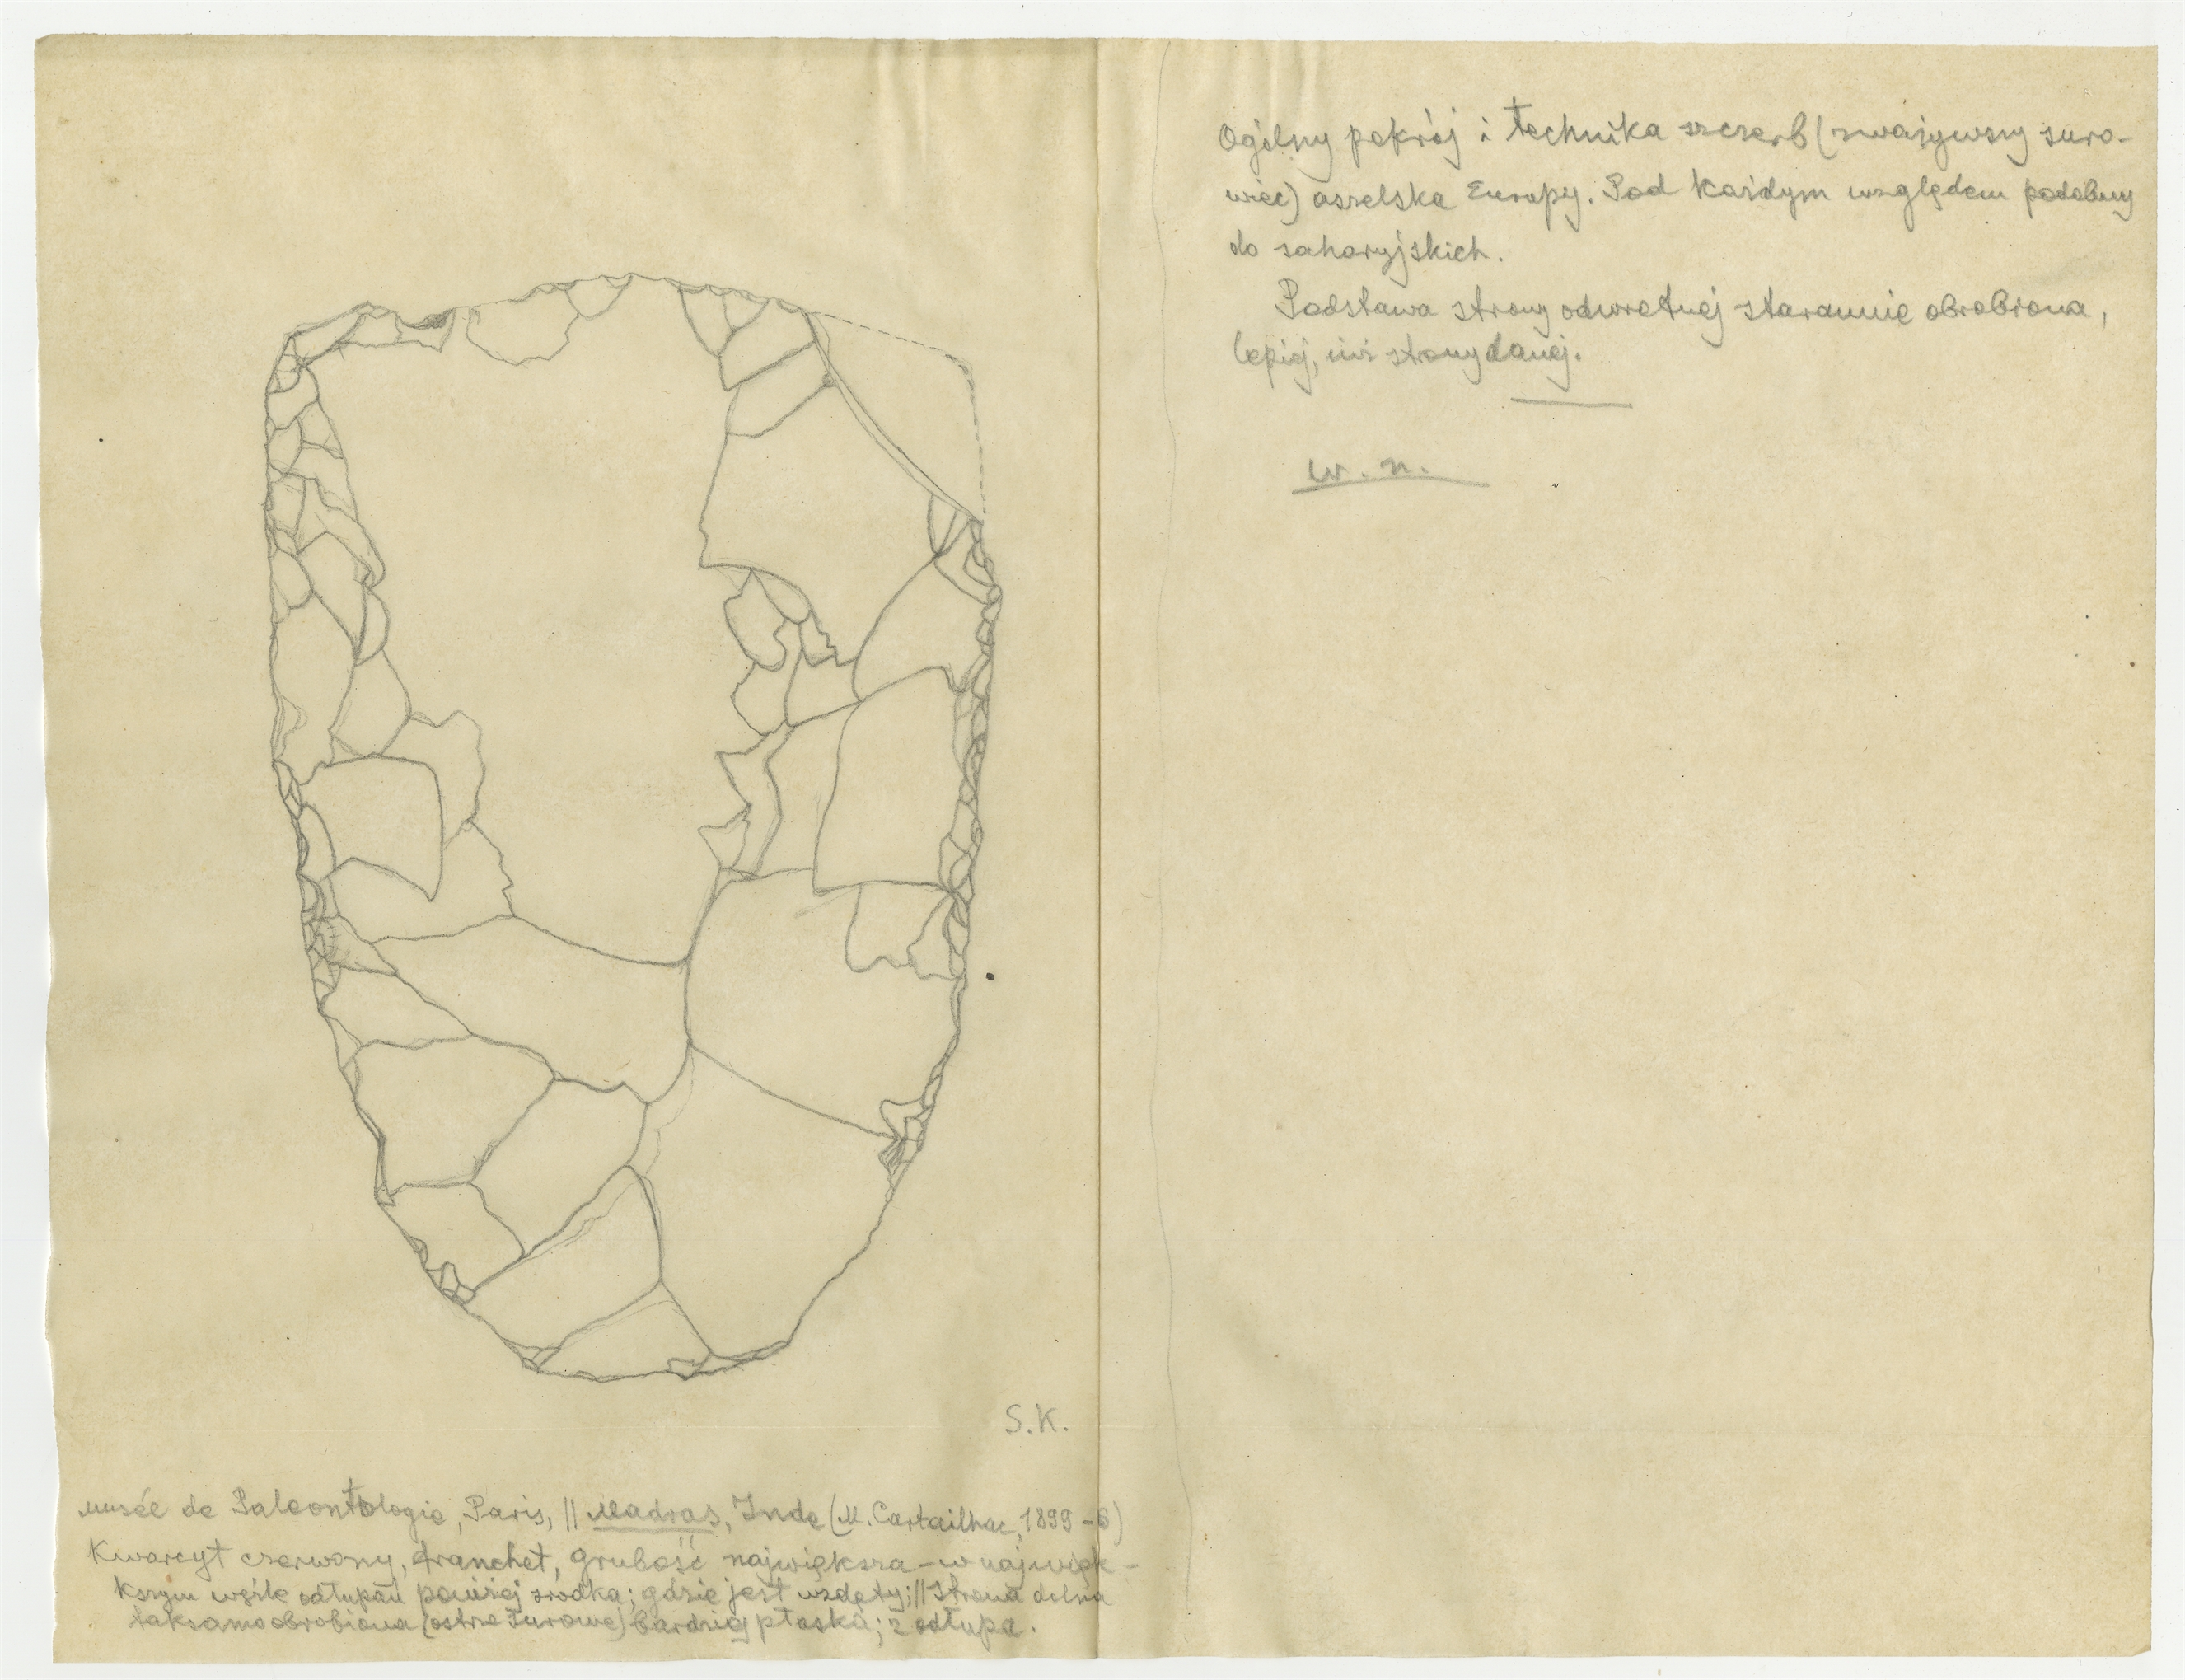 Ogólny pokrój i technika szczerb (zważywszy suro-
wiec) aszelska Europy. Pod każdym względem podobny
do saharyjskich.
Podstawa strony odwrotnej starannie obrobiona,
lepiej, niż strony danej.
w. n.
S.K.
Musée de Paleontologie, Paris, || Madras, Inde (M. Cartailhac, 1899-6)
Kwarcyt czerwony, tranchet, grubość największa - w najwięk-
kszym węźle odłupań poniżej środka; gdzie jest wzdęty; || Strona dolna
taksamo obrobiona (ostrze surowe) bardziej płaska; z odłupa.